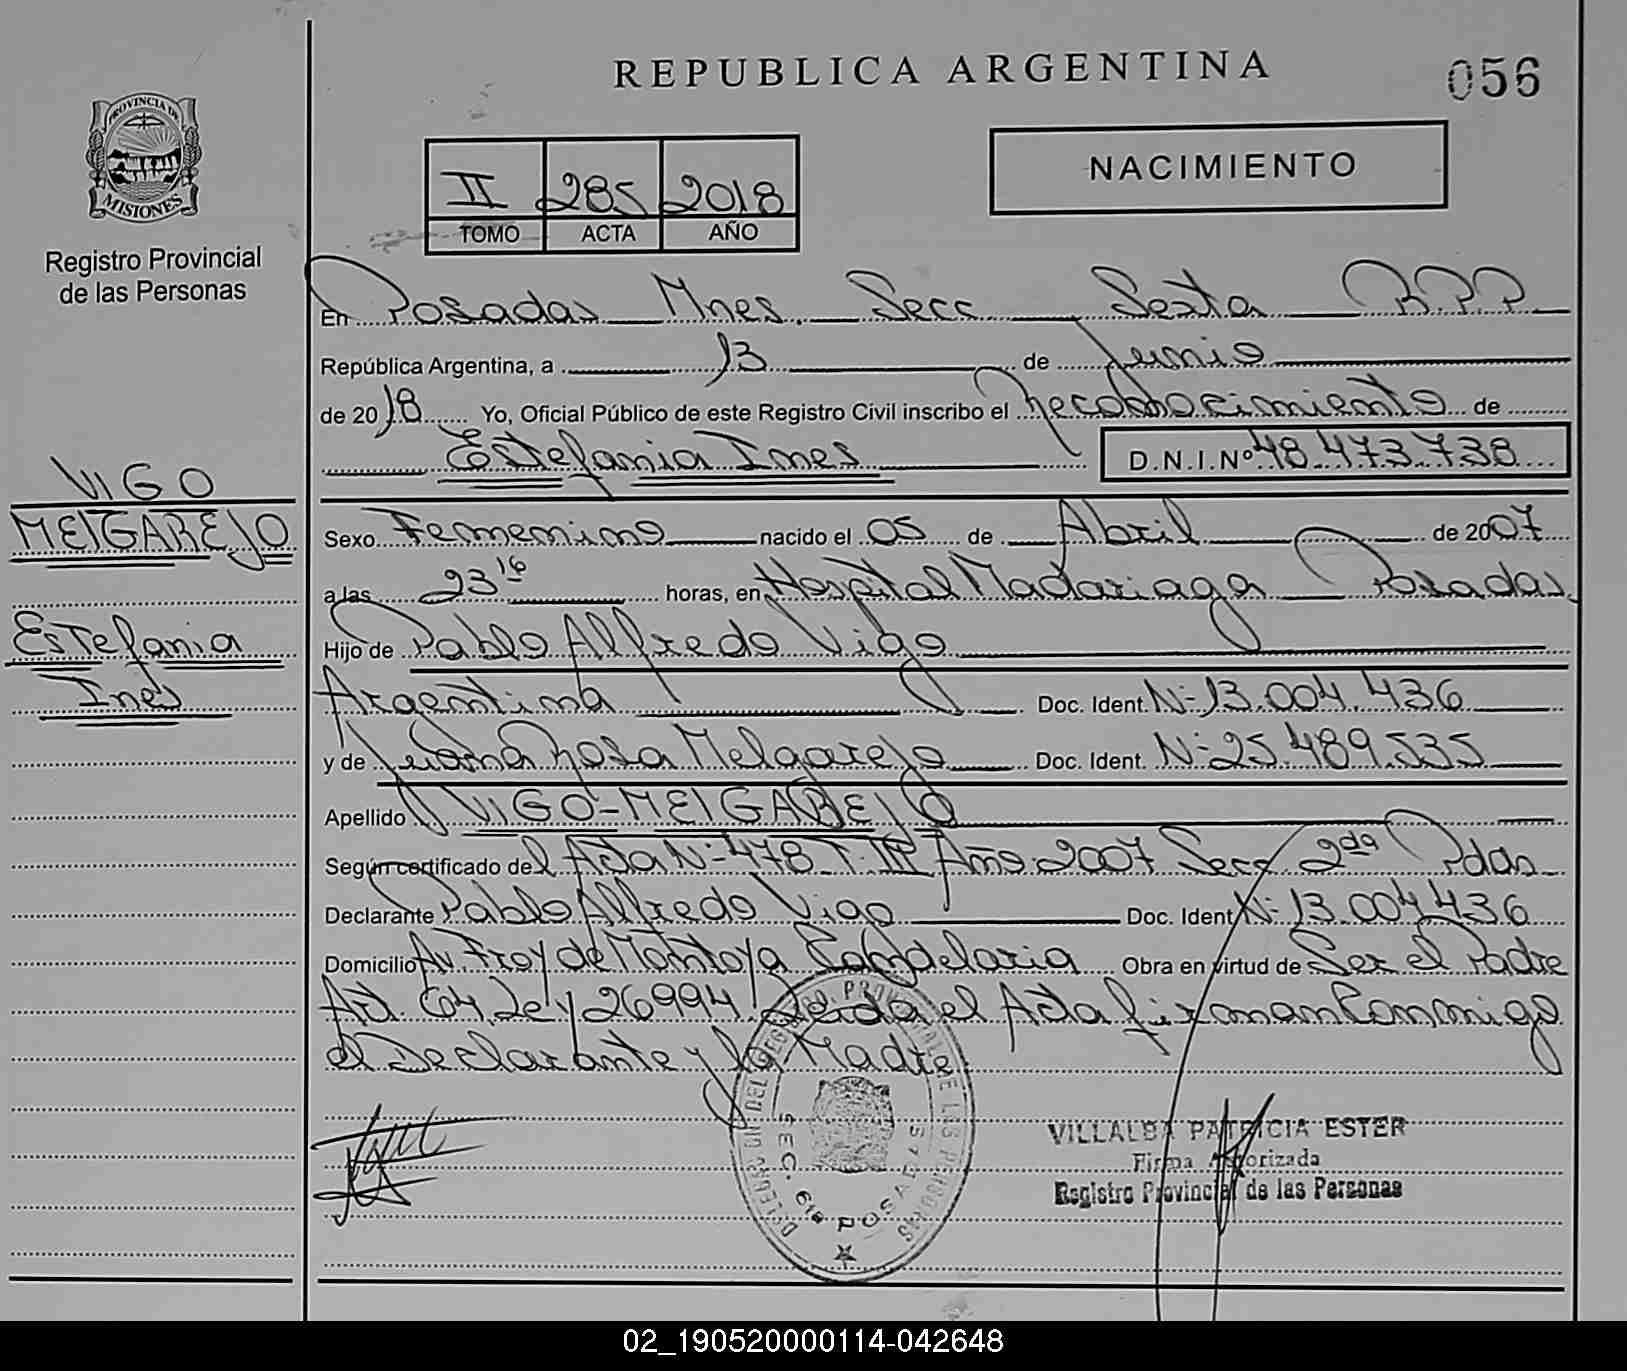 REPUBLICA ARGENTINA
056
PROVINCIA DE
MISIONES
Registro Provincial
de las Personas
II 285 2018
TOMO ACTA AÑO
NACIMIENTO
En Posadas Mnes. Secc Sexta R.P.P.
República Argentina, a 13 de Junio
de 2018 Yo, Oficial Público de este Registro Civil inscribo el Reconocimiento de
Estefania Ines D.N.I.Nº 48.473.738
VIGO
MElGAREJO
Estefania
Ines
Sexo Femenino nacido el 05 de Abril de 2007
a las 23 16 horas, en Hospital Madariaga Posadas
Hijo de Pablo Alfredo Vigo
Argentina Doc. Ident. Nº 13.004.436
y de Juana Rosa Melgarejo Doc. Ident. Nº 25.489.535
Apellido VIGO-MElGAREJO
Según certificado del Acta Nº 478 T. III Año 2007 Secc 2da Pdas
Declarante Pablo Alfredo Vigo Doc. Ident. Nº 13.004.436
Domicilio Av. Fray de Montoya Candelaria Obra en virtud de Ser el Padre
Art. 64 Ley 26994. Leida el Acta firman Conmigo
el Declarante y la Madre
SEC. 6ta POSADAS
VILLALBA PATRICIA ESTER
Firma Autorizada
Registro Provincial de las Personas
02_190520000114-042648